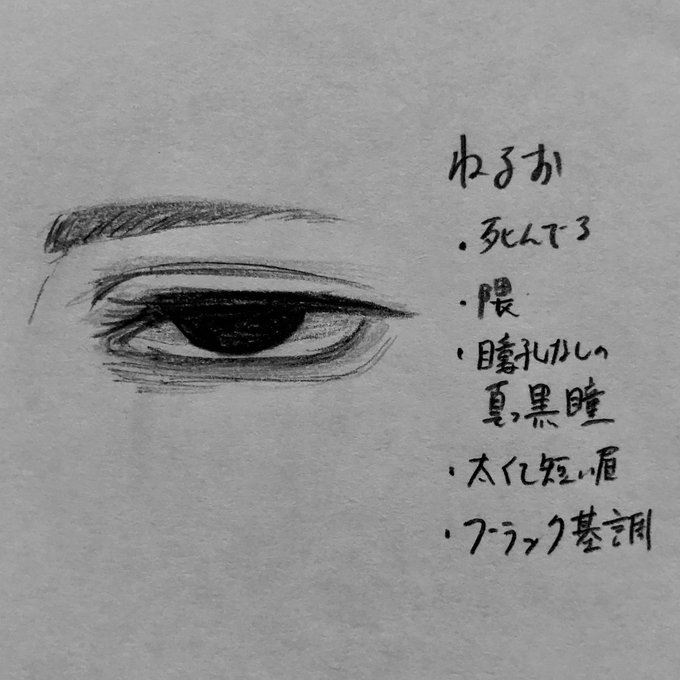 ねるお
・死んでる
・隈
・瞳孔なしの
真っ黒瞳
・太く短い眉
・ブラック基調